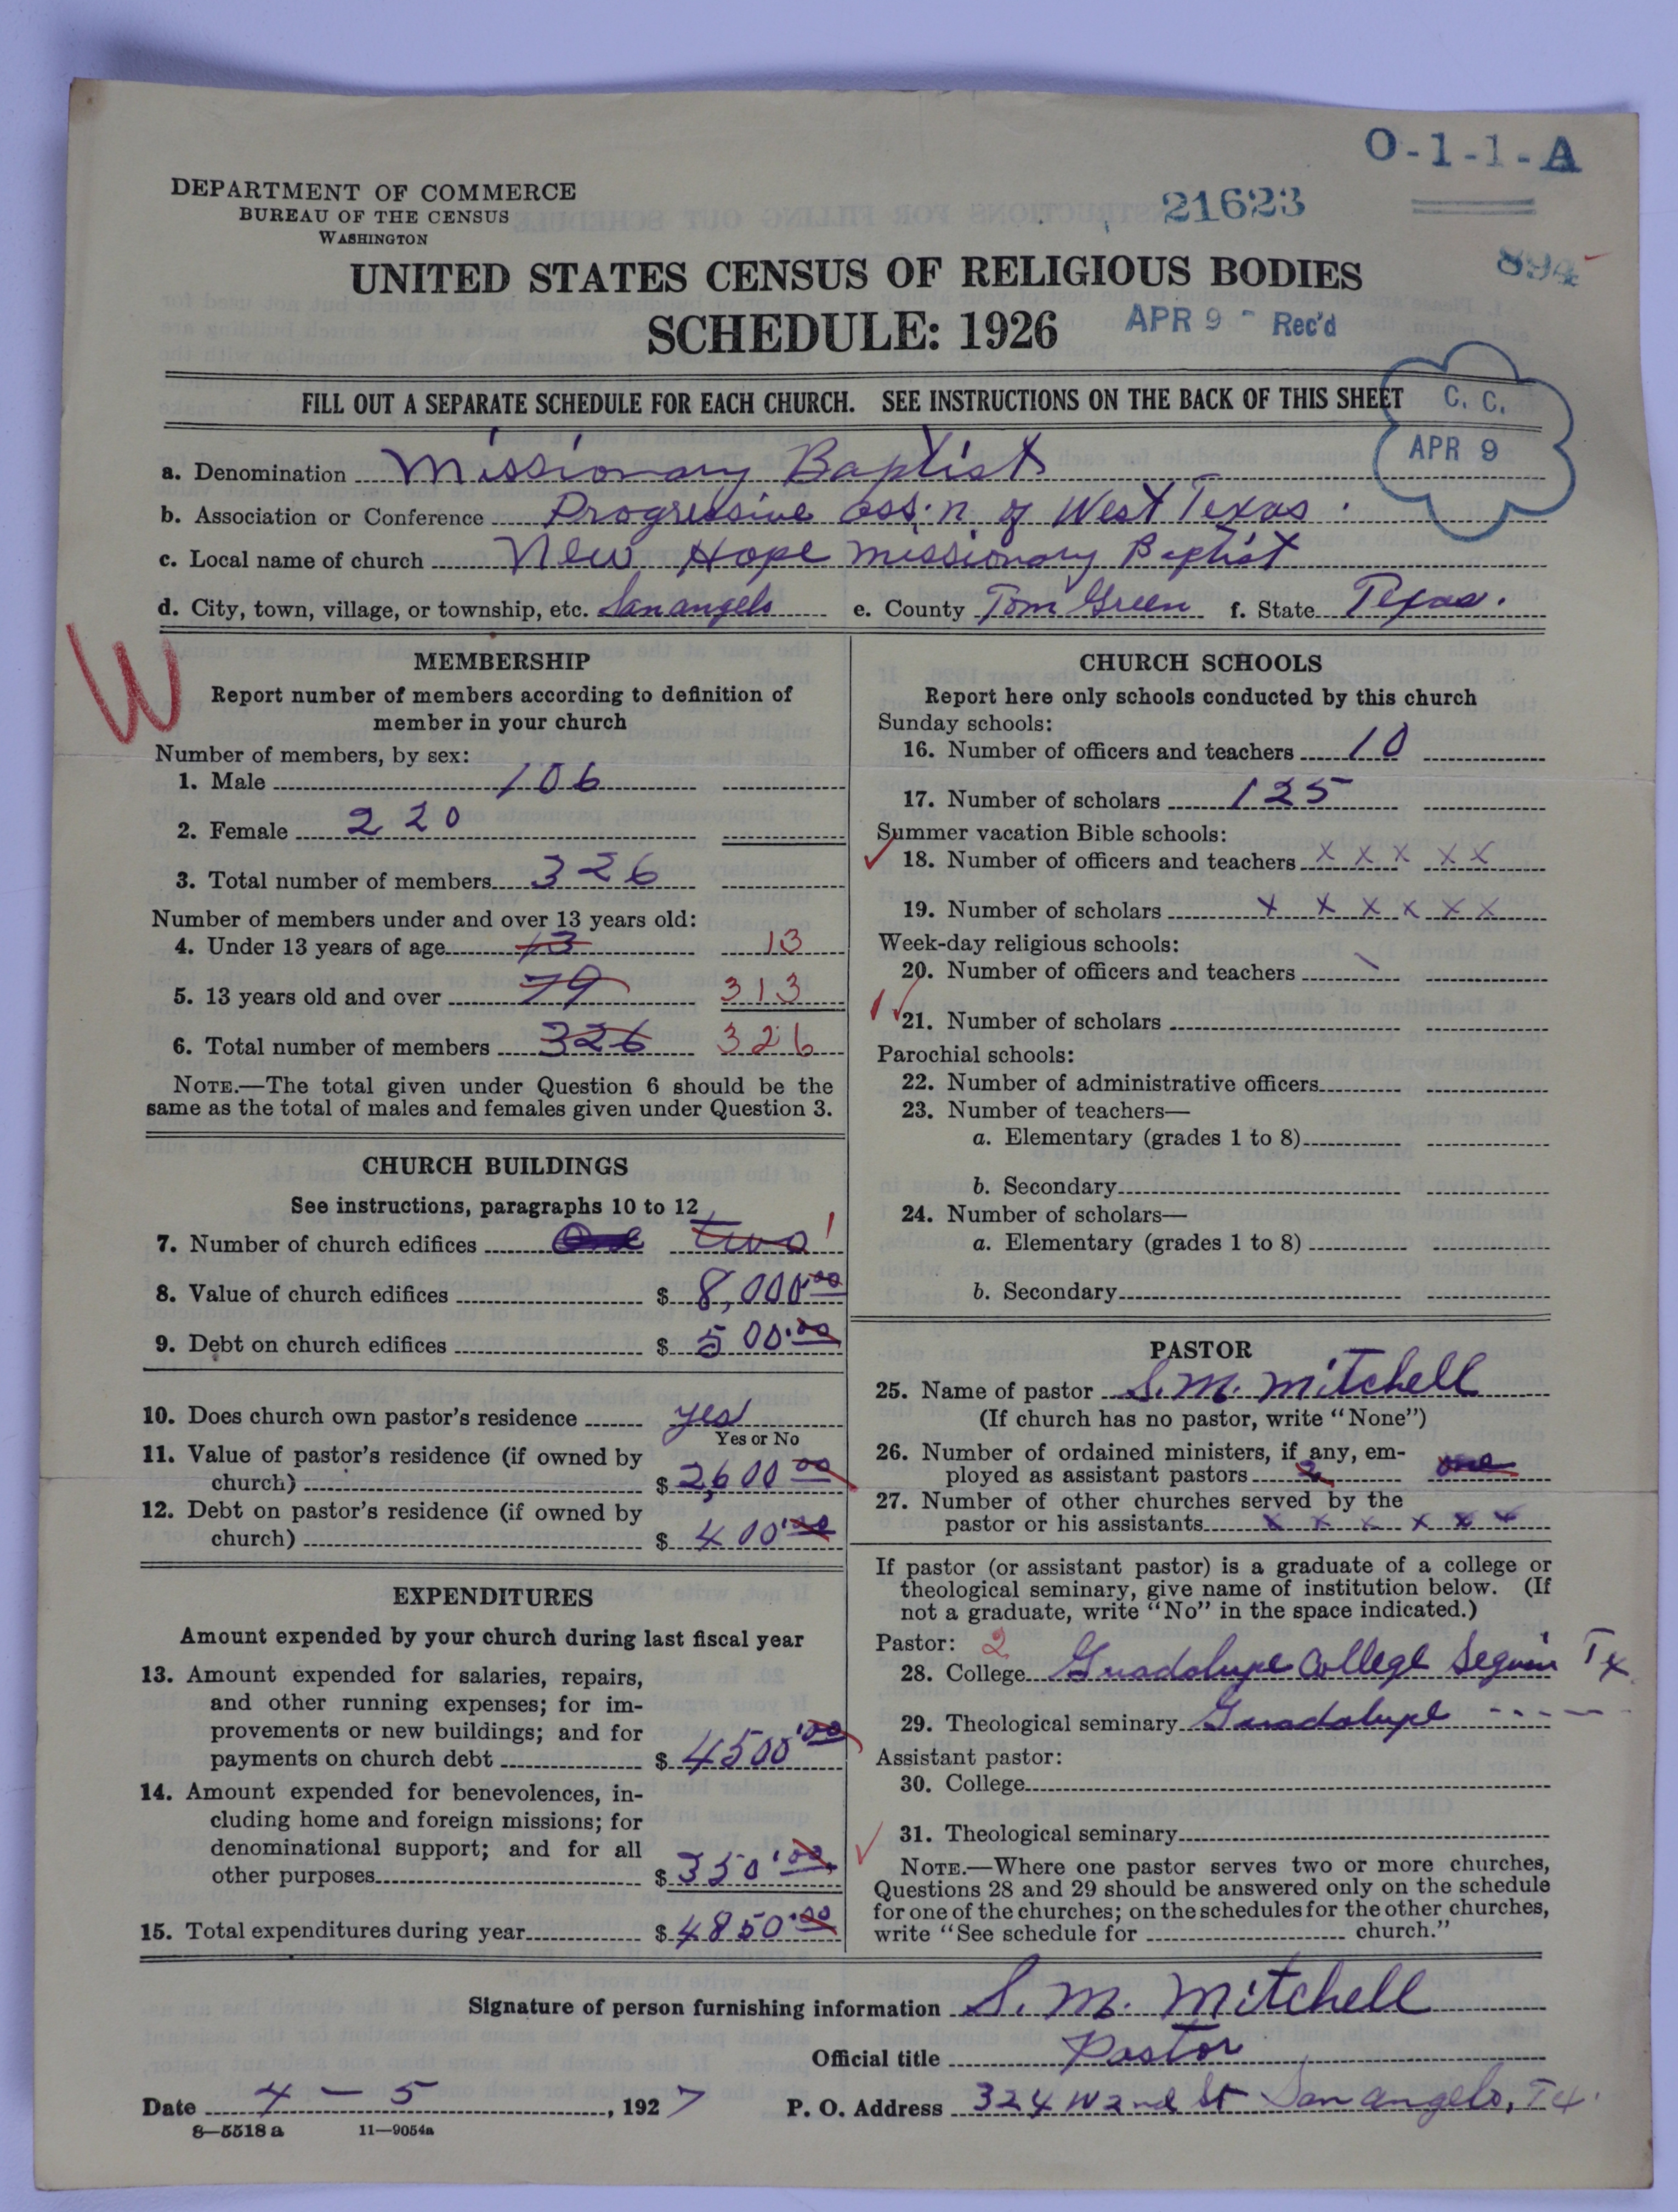 O-1-1-A
DEPARTMENT OF COMMERCE
BUREAU OF THE CENSUS
WASHINGTON
21623
894
UNITED STATES CENSUS OF RELIGIOUS BODIES
SCHEDULE: 1926
APR 9 - Rec'd
FILL OUT A SEPARATE SCHEDULE FOR EACH CHURCH. SEE INSTRUCTIONS ON THE BACK OF THIS SHEET
C. C.
APR 9
a. Denomination Missionary Baptist
b. Association or Conference Progressive ass'n of West Texas.
c. Local name of church New Hope Missionary Baptist
d. City, town, village, or township, etc. San angelo e. County Tom Green f. State Texas.
W
MEMBERSHIP
Report number of members according to definition of
member in your church
Number of members, by sex:
1. Male 106
2. Female 220
3. Total number of members 326
Number of members under and over 13 years old:
4. Under 13 years of age 13 13
5. 13 years old and over 79 313
6. Total number of members 326 326
NOTE.—The total given under Question 6 should be the
same as the total of males and females given under Question 3.
CHURCH BUILDINGS
See instructions, paragraphs 10 to 12
7. Number of church edifices One two 1
8. Value of church edifices $ 8,000.00
9. Debt on church edifices $ 500.00
10. Does church own pastor's residence yes
Yes or No
11. Value of pastor's residence (if owned by
church) $ 2,600.00
12. Debt on pastor's residence (if owned by
church) $ 400.00
EXPENDITURES
Amount expended by your church during last fiscal year
13. Amount expended for salaries, repairs,
and other running expenses; for im-
provements or new buildings; and for
payments on church debt $ 4500.00
14. Amount expended for benevolences, in-
cluding home and foreign missions; for
denominational support; and for all
other purposes $ 350.00
15. Total expenditures during year $ 4850.00
CHURCH SCHOOLS
Report here only schools conducted by this church
Sunday schools:
16. Number of officers and teachers 10
17. Number of scholars 125
Summer vacation Bible schools:
18. Number of officers and teachers x x x x x
19. Number of scholars x x x x x x
Week-day religious schools:
20. Number of officers and teachers
21. Number of scholars
Parochial schools:
22. Number of administrative officers
23. Number of teachers—
a. Elementary (grades 1 to 8)
b. Secondary
24. Number of scholars—
a. Elementary (grades 1 to 8)
b. Secondary
PASTOR
25. Name of pastor S. M. Mitchell
(If church has no pastor, write "None")
26. Number of ordained ministers, if any, em-
ployed as assistant pastors 2 one
27. Number of other churches served by the
pastor or his assistants x x x x x x
If pastor (or assistant pastor) is a graduate of a college or
theological seminary, give name of institution below. (If
not a graduate, write "No" in the space indicated.)
Pastor: 2
28. College Guadalupe College Seguin Tx
29. Theological seminary Guadalupe - - - - -
Assistant pastor:
30. College
31. Theological seminary
NOTE.—Where one pastor serves two or more churches,
Questions 28 and 29 should be answered only on the schedule
for one of the churches; on the schedules for the other churches,
write "See schedule for church."
Signature of person furnishing information S. M. Mitchell
Official title Pastor
Date 4 - 5, 1927 P. O. Address 324 W 2nd St San angelo, Tx.
8—5518a 11—9054a